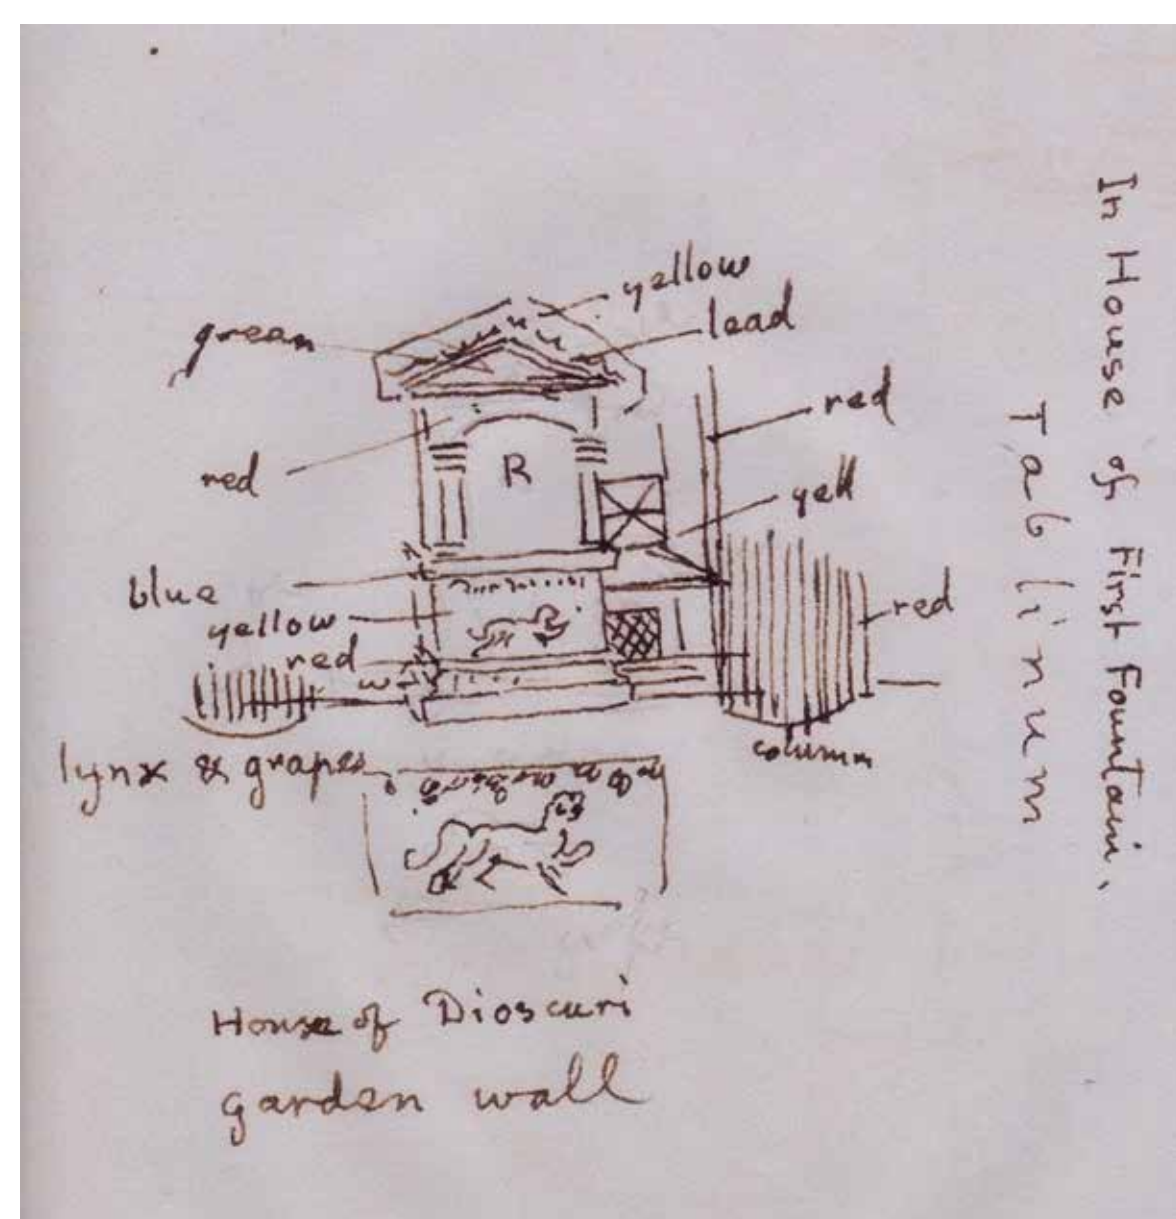 yellow
green
lead
red
red
R
yell
blue
yellow
red
red
w
column
lynx & grapes
House of Dioscuri
garden wall
In House of First Fountain,
Tablinum